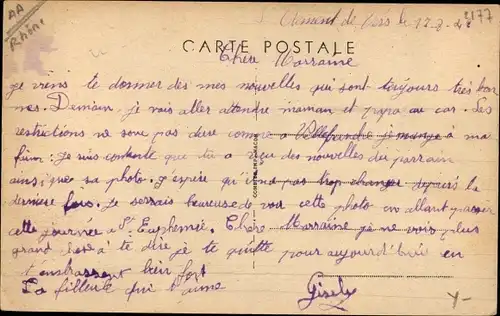 AA
Rhône
2177
Clément de Vers le 12.3.42
CARTE POSTALE
Chère Marraine
je viens te donner des mes nouvelles qui sont toujours très bon
nes. Demain, je vais aller attendre maman et papa au car. Les
restrictions ne sont pas dure comme a Villefranche je mange à ma
faim : je suis contente que tu a reçu des nouvelles du parrain
ainsi que sa photo. J'espère qu'il n'a pas trop changer depuis la
dernière fois. Je serrais heureuse de voir cette photo en allant passer
cette journée a St Euphémie. Chère Marraine je ne vois plus
grand chose à te dire je te quitte pour aujourd'hui en
t'embrassant bien fort
La filleule qui t'aime
Gisèle